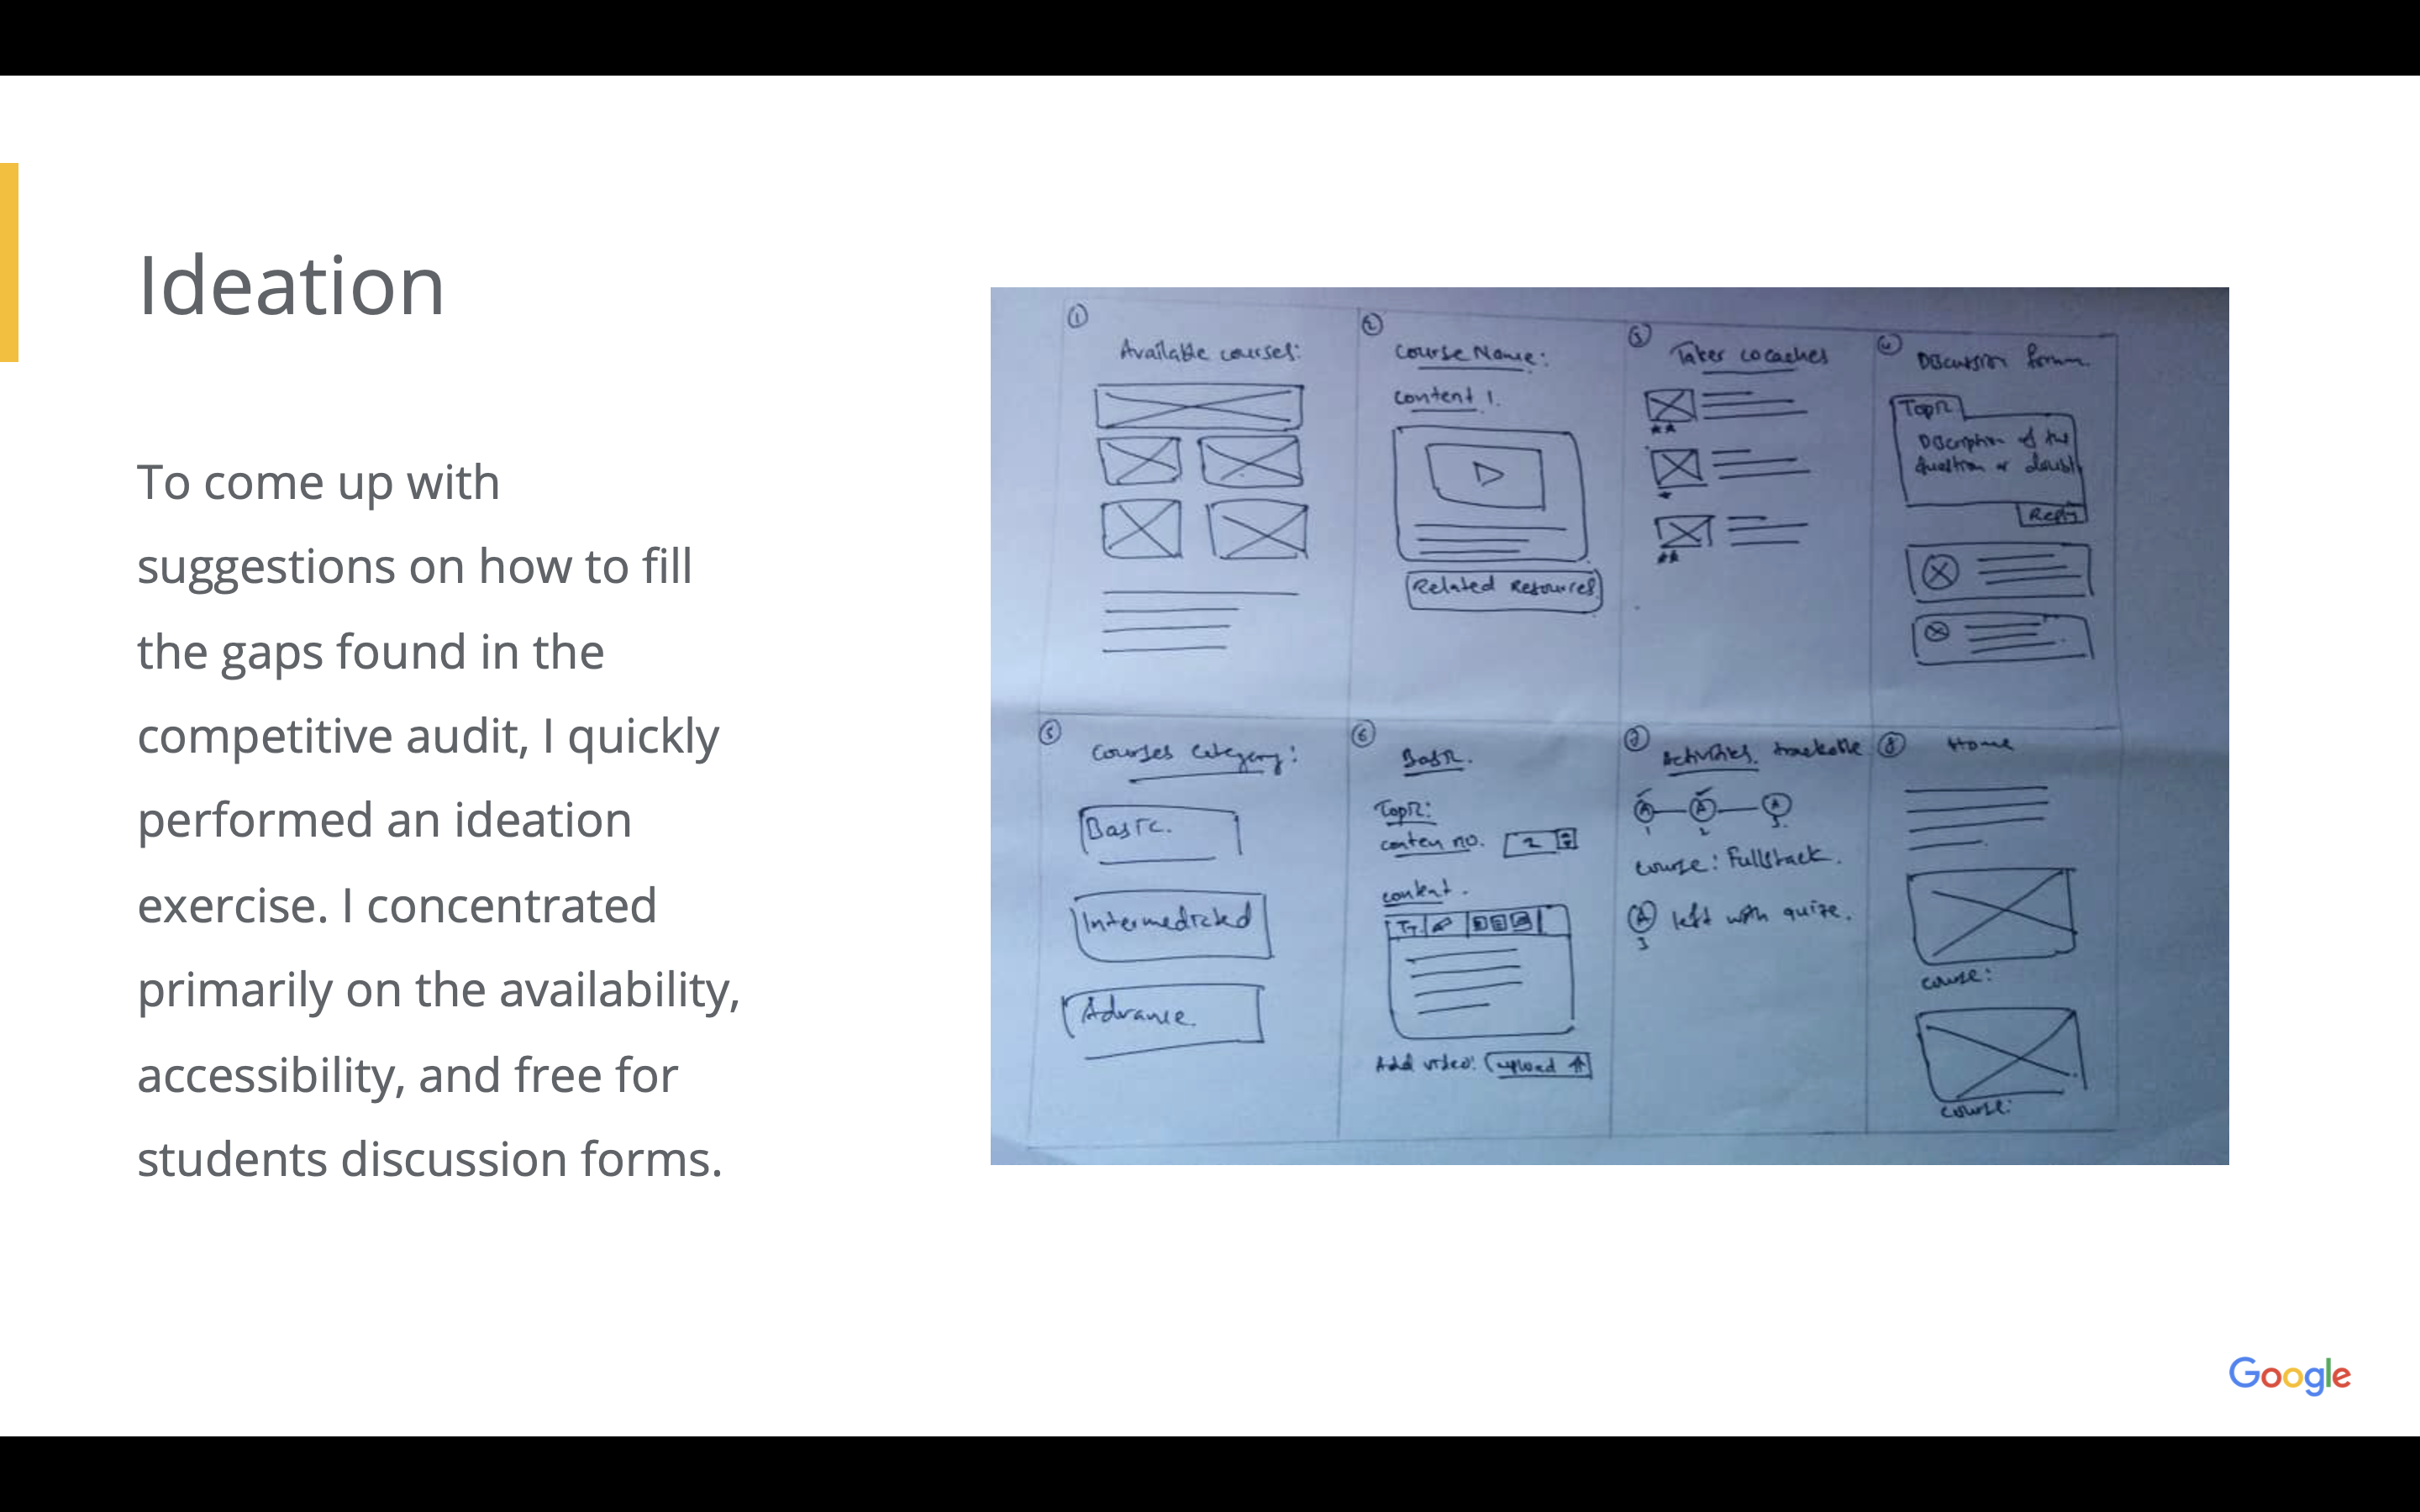 Ideation
To come up with
suggestions on how to fill
the gaps found in the
competitive audit, I quickly
performed an ideation
exercise. I concentrated
primarily on the availability,
accessibility, and free for
students discussion forms.
1
Available courses:
2
Course Name:
content 1.
Related Resources
3
Taker cocaches
4
Discussion forum
Topic
Discription of the
question or doubt
Reply
5
Courses Category:
Basic.
Intermedicted
Advance.
6
Basic.
Topic:
conten no. 2
content.
Tт
Add video: upload
7
Activities trackable
A A A
1 2 3.
course: Fullstack.
A left with quize.
3
8
Home
course:
course:
Google